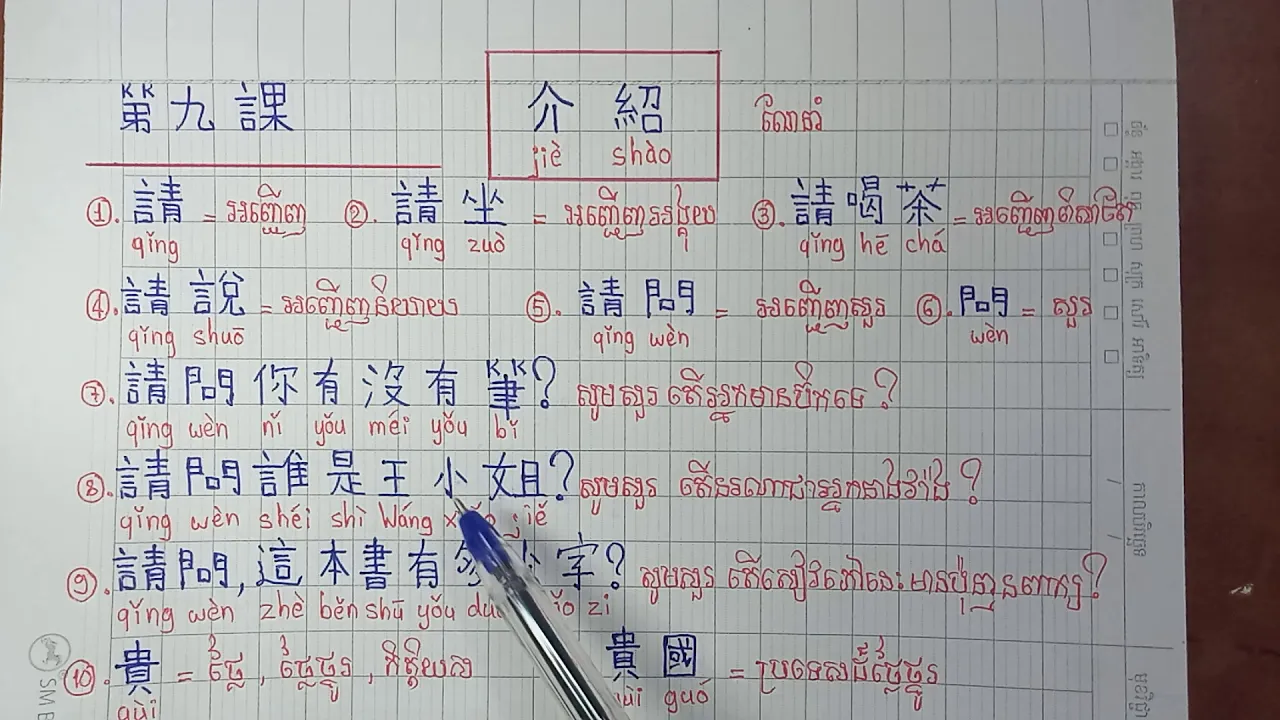 第九課 介紹 ណែនាំ
jiè shào
①. 請 = អញ្ជើញ ②. 請坐 = អញ្ជើញអង្គុយ ③. 請喝茶 = អញ្ជើញពិសាតែ
qǐng qǐng zuò qǐng hē chá
④. 請說 = អញ្ជើញនិយាយ ⑤. 請問 = អញ្ជើញសួរ ⑥. 問 = សួរ
qǐng shuō qǐng wèn wèn
⑦. 請問你有沒有筆? សូមសួរ តើអ្នកមានប៊ិកទេ?
qǐng wèn nǐ yǒu méi yǒu bǐ
⑧. 請問誰是王小姐? សូមសួរ តើនរណាជាអ្នកនាងវ៉ាង?
qǐng wèn shéi shì Wáng jiě
⑨. 請問,這本書有 字? សូមសួរ តើសៀវភៅនេះមានប៉ុន្មានពាក្យ?
qǐng wèn zhè běn shū yǒu zi
⑩. 貴 = ថ្លៃ, ថ្លៃថ្នូរ, កិត្តិយស 貴國 = ប្រទេសដ៏ថ្លៃថ្នូរ
guì guó
SM